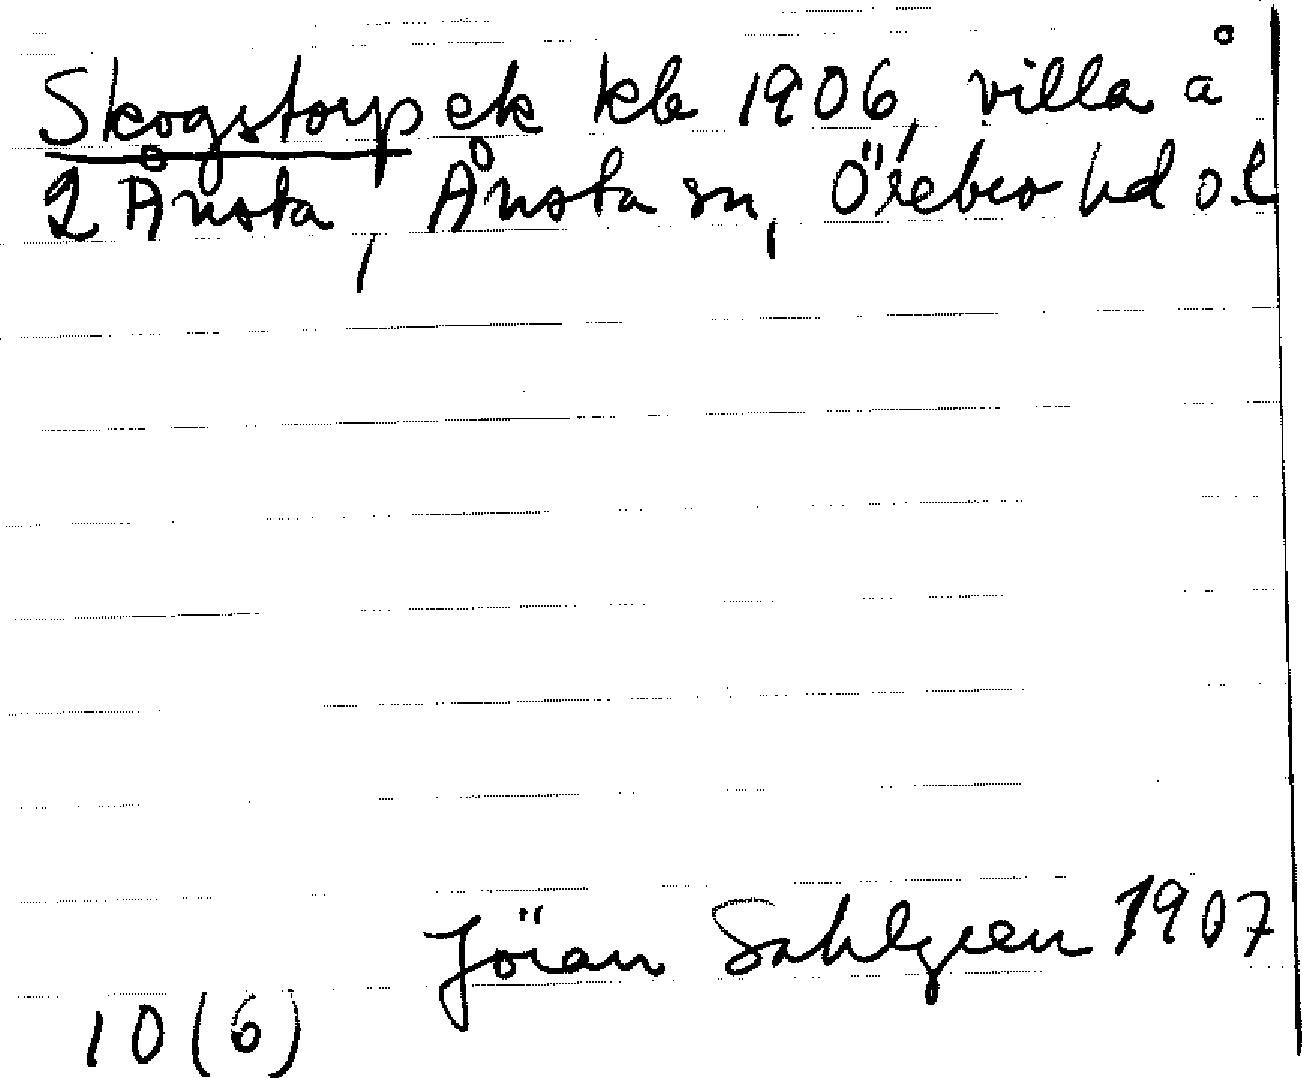 Skogstorp ek kb 1906, villa å
2 Ånsta, Ånsta sn, Örebro hd o.l
Jöran Sahlgren 1907
10(6)